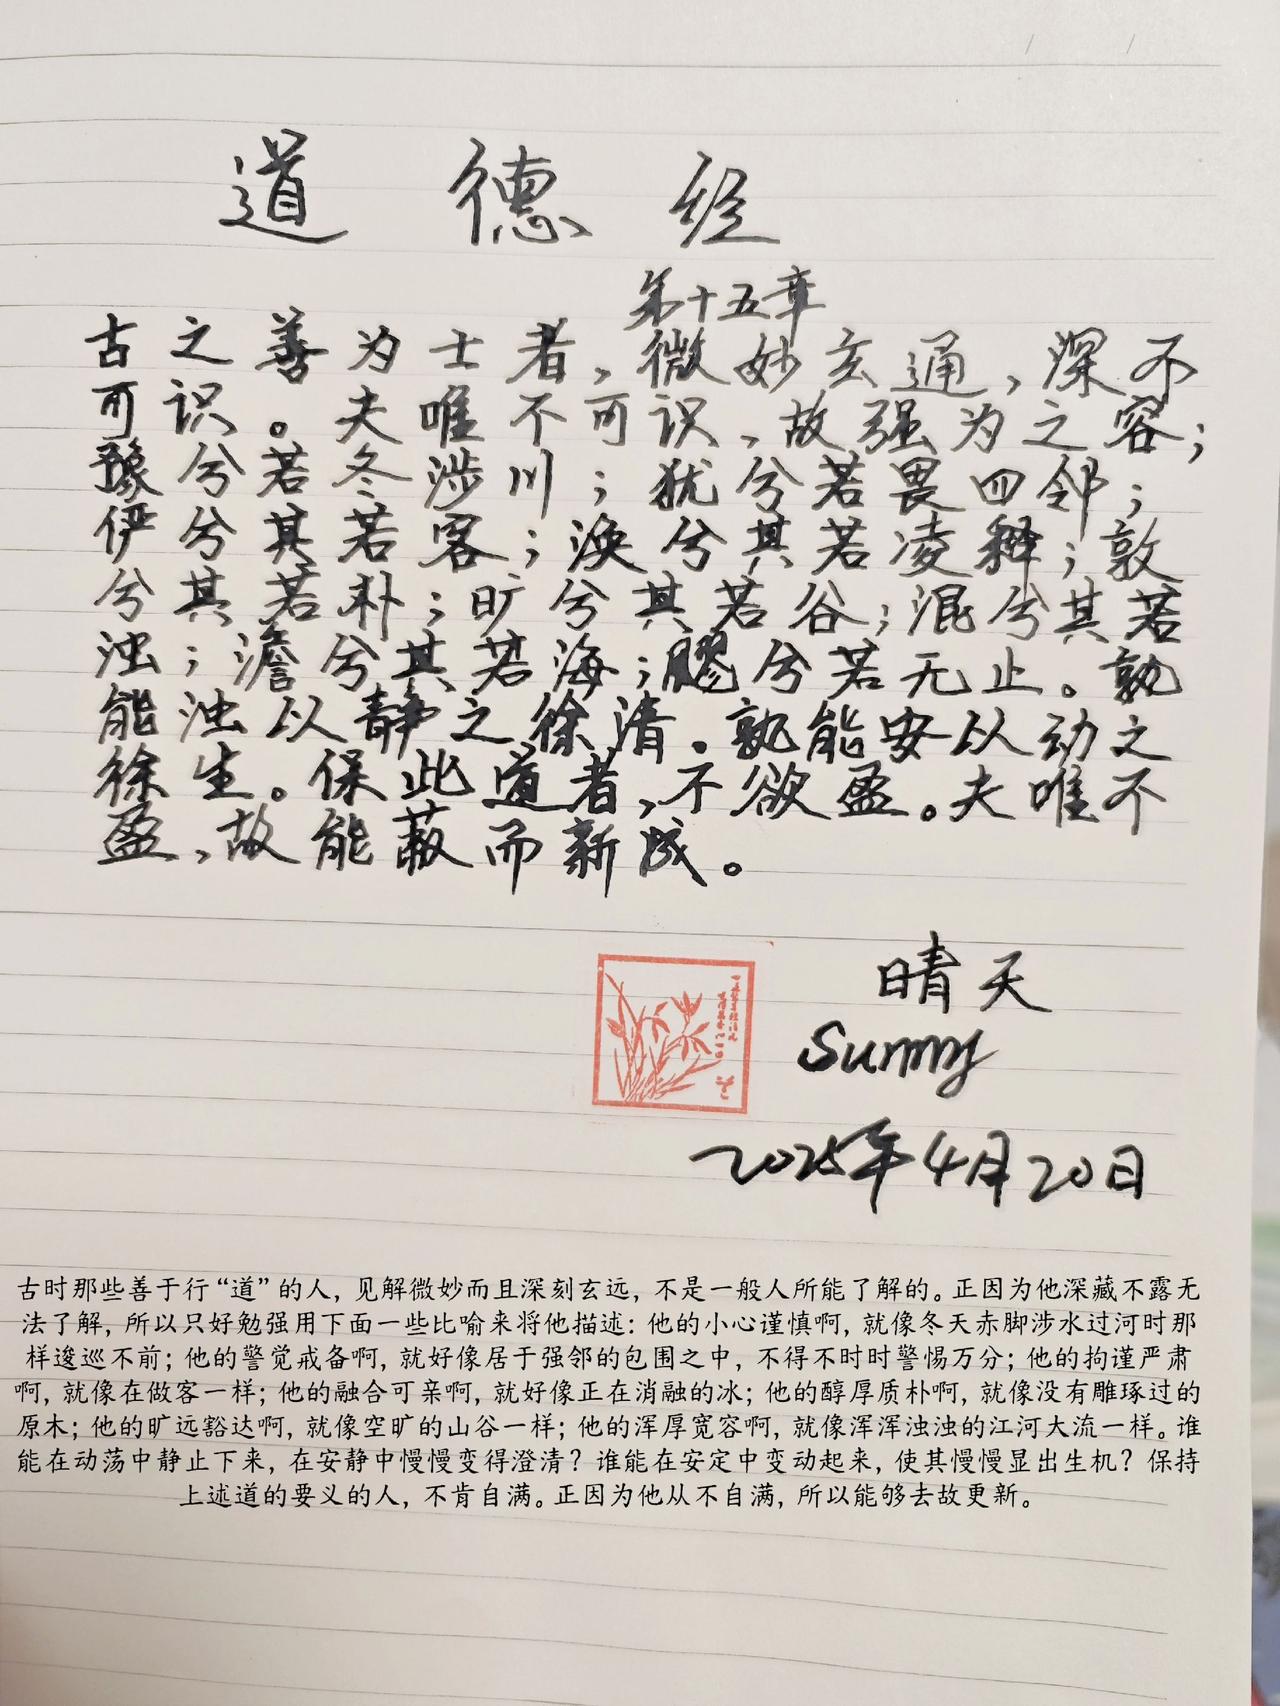 道德经
第十五章
古之善为士者，微妙玄通，深不
可识。夫唯不可识，故强为之容；
豫兮若冬涉川；犹兮若畏四邻；
俨兮其若客；涣兮其若凌释；敦
兮其若朴；旷兮其若谷；混兮其若
浊；澹兮其若海；飂兮若无止。孰
能浊以静之徐清。孰能安以动之
徐生。保此道者，不欲盈。夫唯不
盈，故能蔽而新成。
晴天
Sunny
2025年4月20日
古时那些善于行“道”的人，见解微妙而且深刻玄远，不是一般人所能了解的。正因为他深藏不露无
法了解，所以只好勉强用下面一些比喻来将他描述：他的小心谨慎啊，就像冬天赤脚涉水过河时那
样逡巡不前；他的警觉戒备啊，就好像居于强邻的包围之中，不得不时时警惕万分；他的拘谨严肃
啊，就像在做客一样；他的融合可亲啊，就好像正在消融的冰；他的醇厚质朴啊，就像没有雕琢过的
原木；他的旷远豁达啊，就像空旷的山谷一样；他的浑厚宽容啊，就像浑浑浊浊的江河大流一样。谁
能在动荡中静止下来，在安静中慢慢变得澄清？谁能在安定中变动起来，使其慢慢显出生机？保持
上述道的要义的人，不肯自满。正因为他从不自满，所以能够去故更新。